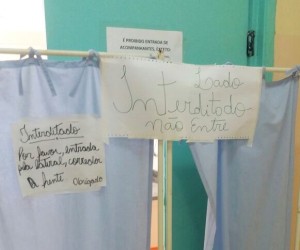 É PROIBIDO ENTRADA DE
ACOMPANHANTES, EXCETO
Lado
Interditado
não Entre
Interditado
Por favor, entrada
pela lateral, corredor
a frente
Obrigado